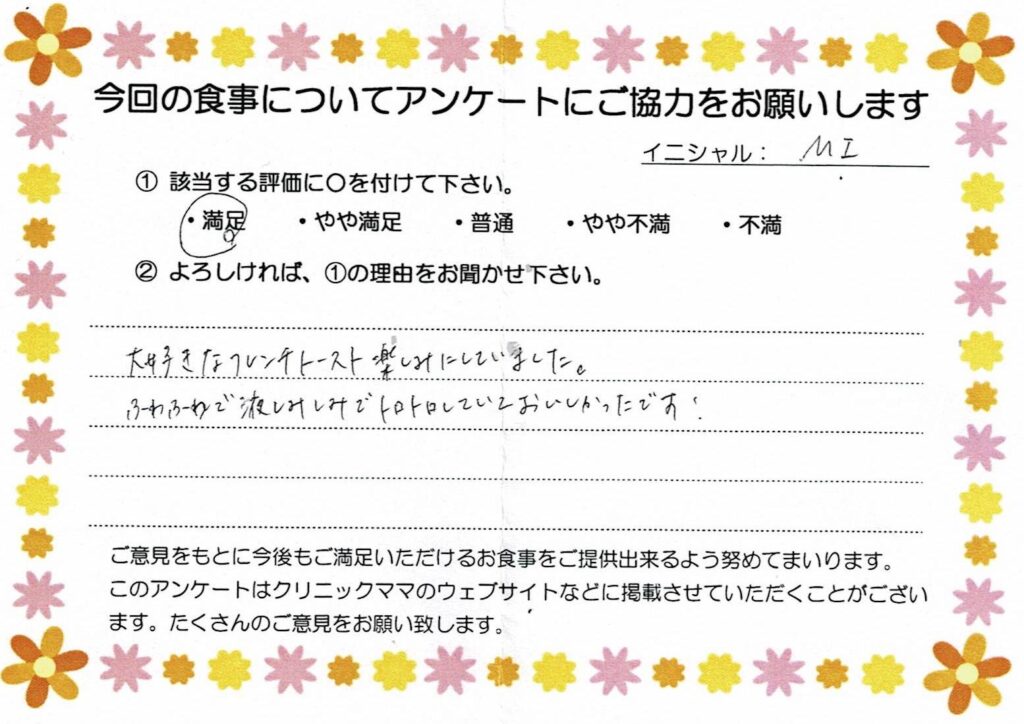 今回の食事についてアンケートにご協力をお願いします
イニシャル： M I
① 該当する評価に〇を付けて下さい。
・満足 ・やや満足 ・普通 ・やや不満 ・不満
② よろしければ、①の理由をお聞かせ下さい。
大好きなフレンチトースト楽しみにしていました。
ふわふわで液しみしみでトロトロしていておいしかったです！
ご意見をもとに今後もご満足いただけるお食事をご提供出来るよう努めてまいります。
このアンケートはクリニックママのウェブサイトなどに掲載させていただくことがござい
ます。たくさんのご意見をお願い致します。